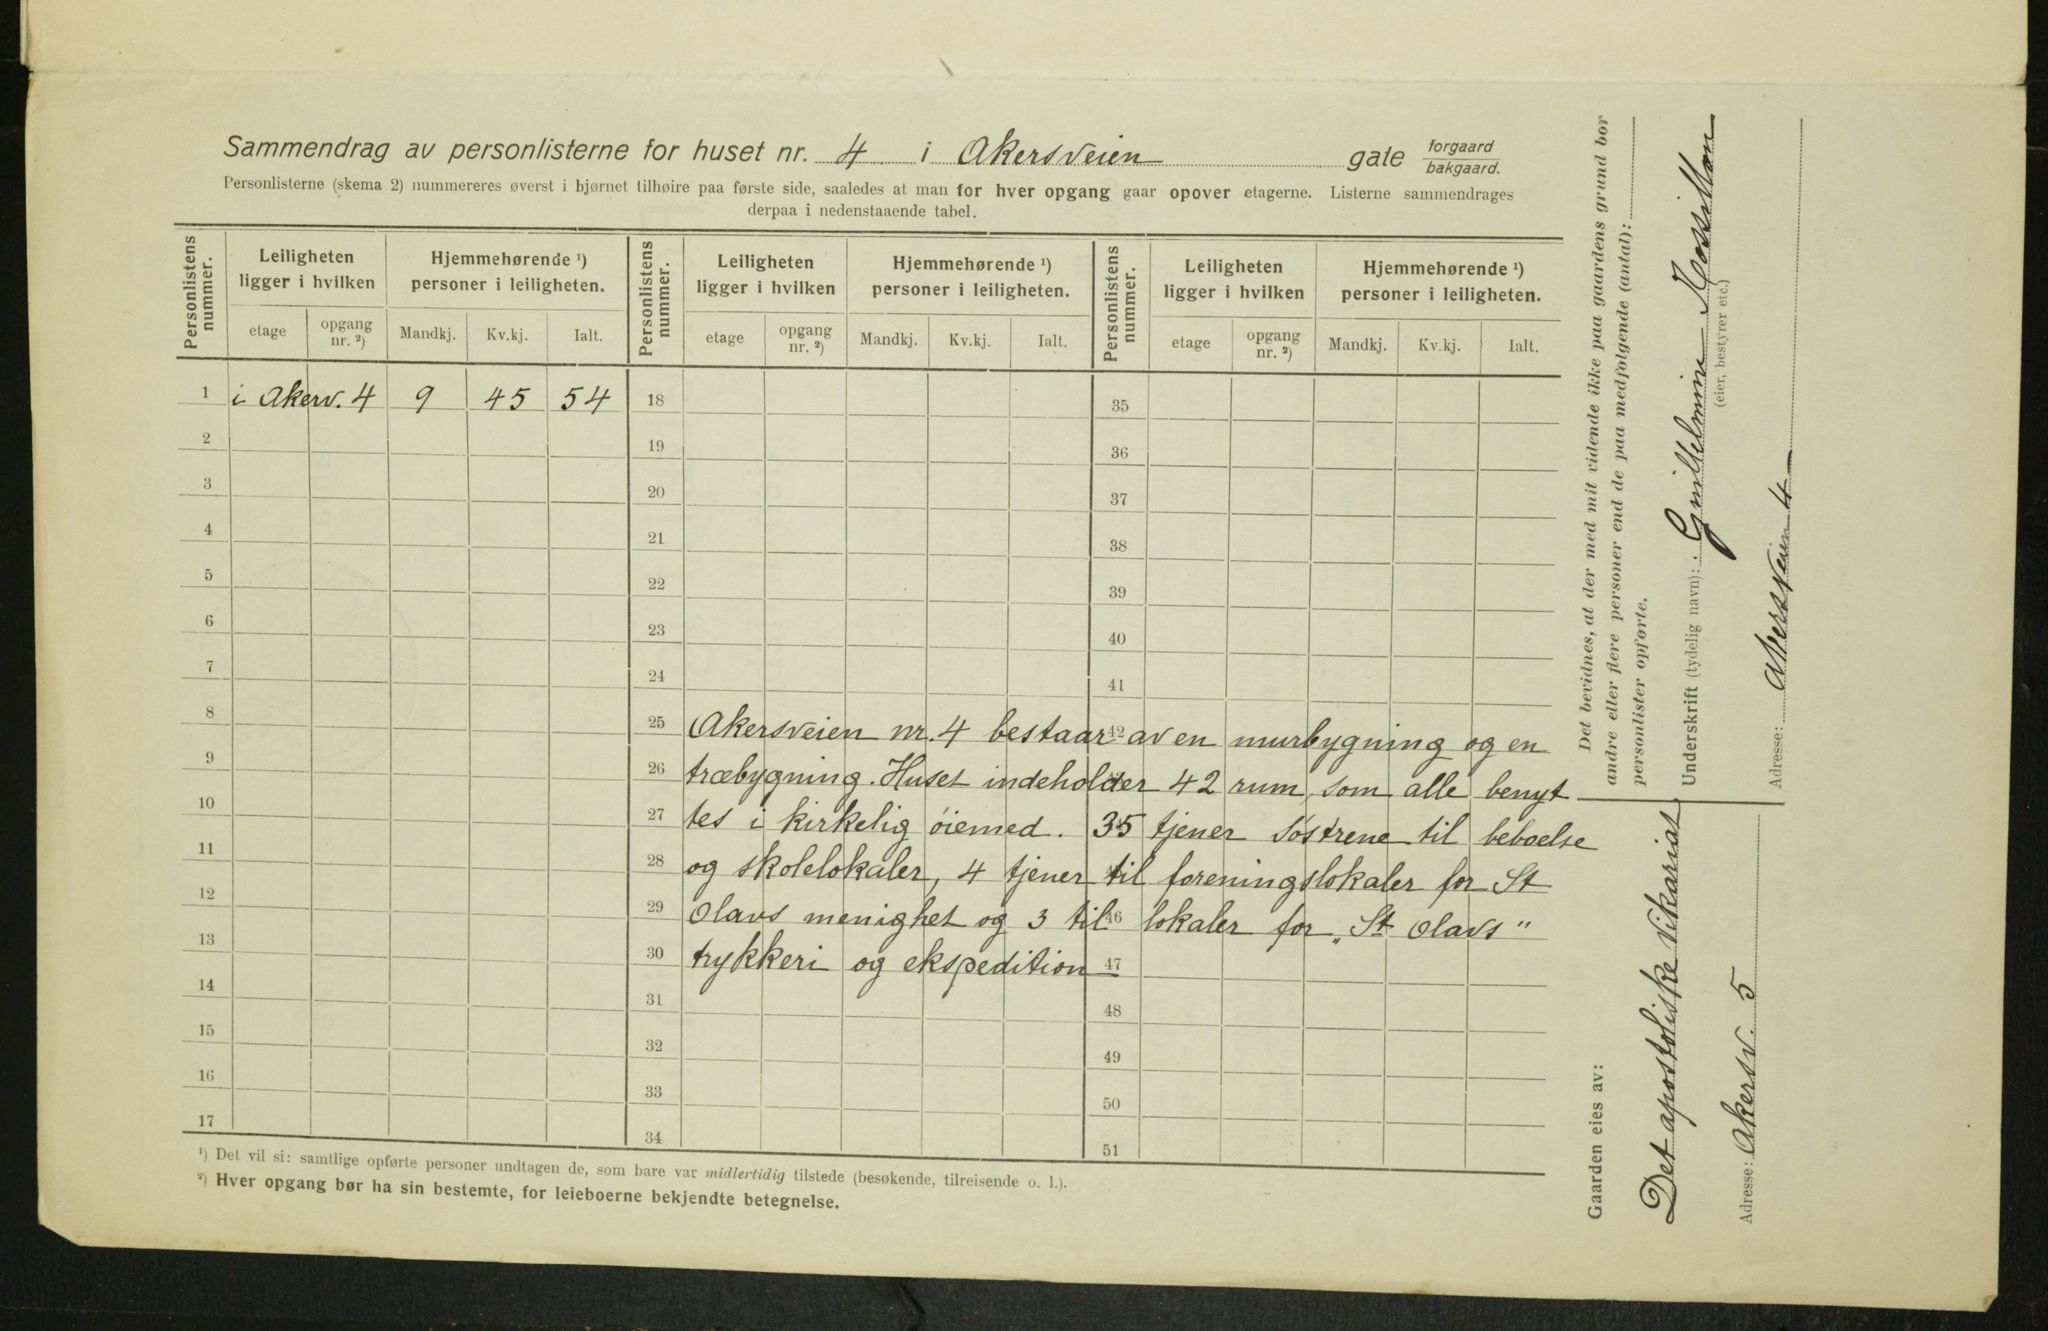 Sammendrag av personlisterne for huset nr. 4 i Akersveien gate forgaard bakgaard.
Personlisterne (skema 2) nummereres øverst i hjørnet tilhøire paa første side, saaledes at man for hver opgang gaar opover etagerne. Listerne sammendrages
derpaa i nedenstaaende tabel.
Personlistens nummer. Leiligheten ligger i hvilken Hjemmehørende ¹) personer i leiligheten. Personlistens nummer. Leiligheten ligger i hvilken Hjemmehørende ¹) personer i leiligheten. Personlistens nummer. Leiligheten ligger i hvilken Hjemmehørende ¹) personer i leiligheten.
etage opgang nr. ²) Mandkj. Kv.kj. Ialt. etage opgang nr. ²) Mandkj. Kv.kj. Ialt. etage opgang nr. ²) Mandkj. Kv.kj. Ialt.
1 i Akersv. 4 9 45 54 18 35
2 19 36
3 20 37
4 21 38
5 22 39
6 23 40
7 24 41
8 25 Akersveien nr. 4 bestaar 42 av en murbygning og en
9 26 træbygning. Huset indeholder 42 rum, som alle benyt
10 27 tes i kirkelig øiemed. 35 tjener søstrene til beboelse
11 28 og skolelokaler, 4 tjener til foreningslokaler for St
12 29 Olavs menighet og 3 til 46 lokaler for „St Olavs"
13 30 trykkeri og ekspedition 47
14 31 48
15 32 49
16 33 50
17 34 51
¹) Det vil si: samtlige opførte personer undtagen de, som bare var midlertidig tilstede (besøkende, tilreisende o. l.).
²) Hver opgang bør ha sin bestemte, for leieboerne bekjendte betegnelse.
Det bevidnes, at der med mit vidende ikke paa gaardens grund bor
andre eller flere personer end de paa medfølgende (antal):
personlister opførte.
Underskrift (tydelig navn): Guillelmine
(eier, bestyrer etc.)
Adresse: Akersveien 4
Gaarden eies av:
Det apostoliske Vikariat
Adresse: Akersv. 5